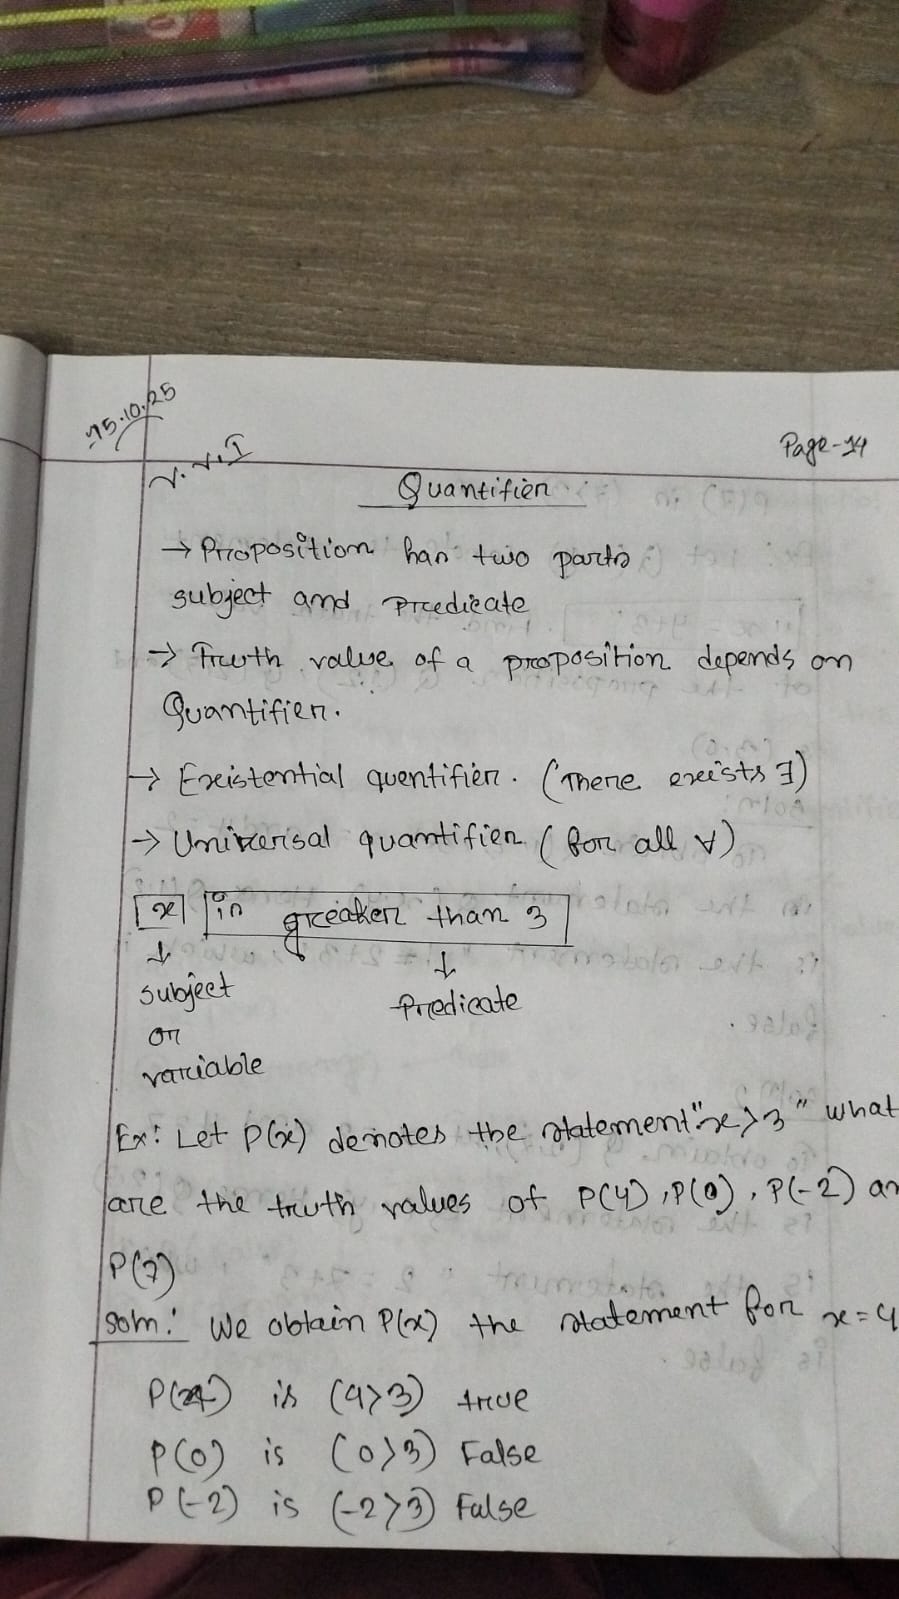 15.10.25
Page-14
V.V.I
Quantifier
→ Proposition has two parts
subject and predicate
→ Truth value of a proposition depends on
Quantifier.
→ Existential quentifier. (There exists ∃)
→ Universal quantifier (for all ∀)
x is greater than 3
↓ ↓
subject Predicate
or
variable
Ex: Let P(x) denotes the statement "x>3" what
are the truth values of P(4), P(0), P(-2) an
P(7)
Soln: We obtain P(x) the statement for x=4
P(4) is (4>3) true
P(0) is (0>3) False
P(-2) is (-2>3) False